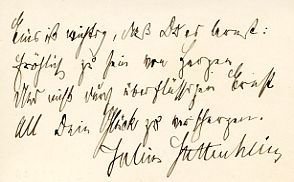 Eins ist wichtig, daß Du es lernst:
Fröhlich zu sein von Herzen
Und nicht durch überflüssigen Ernst
All Dein Glück zu verscherzen.
Julius